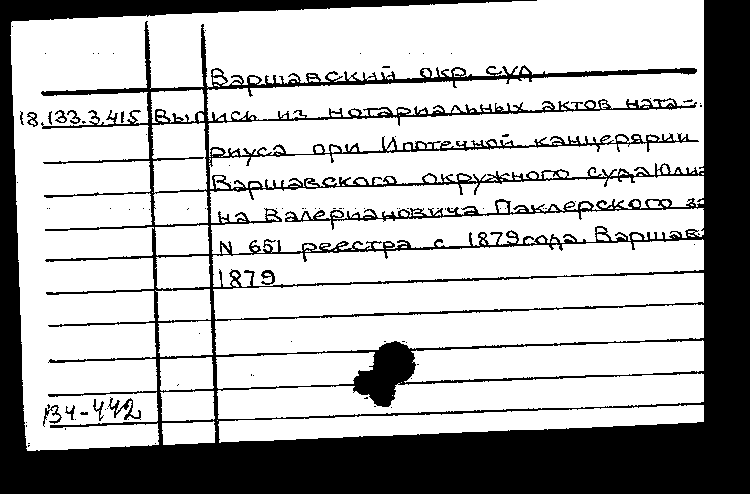 Варшавский окр. суд.
18.133.3.415 Выпись из нотариальных актов ната-
риуса при Ипотечной канцерярии
Варшавского окружного суда Юлиа
на Валериановича Паклерского за
N 651 реестра с 1879 года. Варшава
1879
134-442